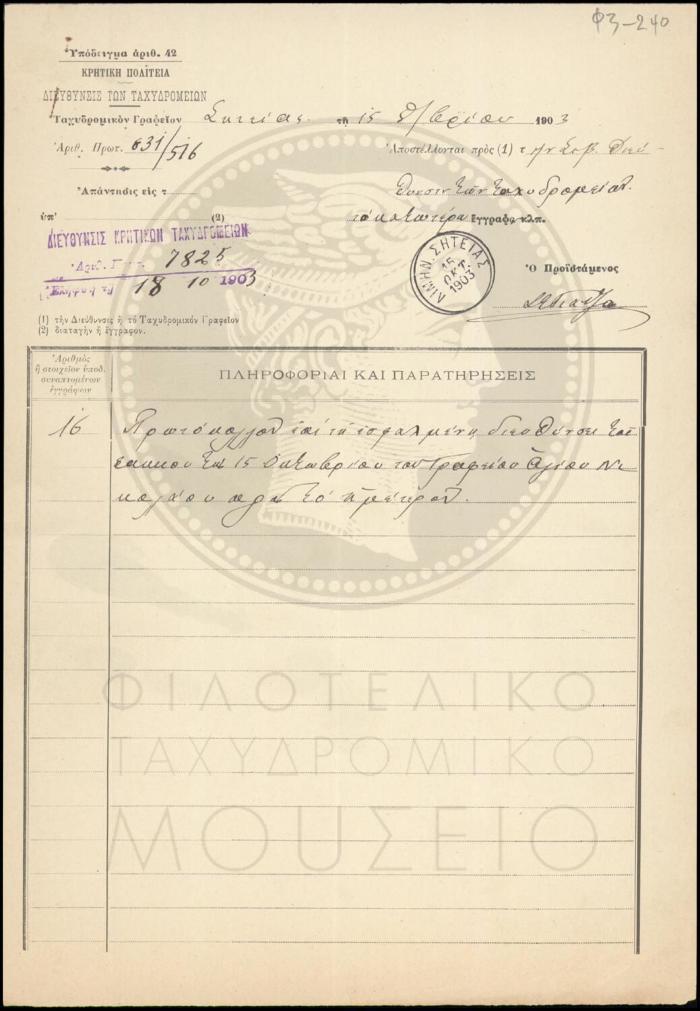 ΦЗ-240
Ὑπόδειγμα ἀριθ. 42
ΚΡΗΤΙΚΗ ΠΟΛΙΤΕΙΑ
ΔΙΕΥΘΥΝΣΙΣ ΤΩΝ ΤΑΧΥΔΡΟΜΕΙΩΝ
Ταχυδρομικὸν Γραφεῖον Σητείας τῇ 15 8/βρίου 1903
Ἀριθ. Πρωτ. 831/516
Ἀποστέλλονται πρὸς (1) τ ην Σεβ. Διεύ-
Ἀπάντησις εἰς τ
θυνσιν των Ταχυδρομείων
ὑπ' (2)
τὰ κατωτέρω ἔγγραφα κλπ.
ΔΙΕΥΘΥΝΣΙΣ ΚΡΗΤΙΚΩΝ ΤΑΧΥΔΡΟΜΕΙΩΝ
Ἀριθ. Πρωτ. 7825
Ἐλήφθη τῇ 18 10 1903
ΛΙΜΗΝ. ΣΗΤΕΙΑΣ
15
ΟΚΤ.
1903
Ὁ Προϊστάμενος
(1) τὴν Διεύθυνσιν ἢ τὸ Ταχυδρομικὸν Γραφεῖον
(2) διαταγὴν ἢ ἔγγραφον.
Ἀριθμὸς
ἢ στοιχεῖον ὑποδ.
συναπτομένων
ἐγγράφων
ΠΛΗΡΟΦΟΡΙΑΙ ΚΑΙ ΠΑΡΑΤΗΡΗΣΕΙΣ
16 Πρωτόκολλον ἐπὶ τῇ ἐσφαλμένῃ διευθύνσει τοῦ
σάκκου τῆς 15 Οκτωβρίου του Γραφείου Αγίου Νι
κολάου προς το ημέτερον.
ΦΙΛΟΤΕΛΙΚΟ
ΤΑΧΥΔΡΟΜΙΚΟ
ΜΟΥΣΕΙΟ